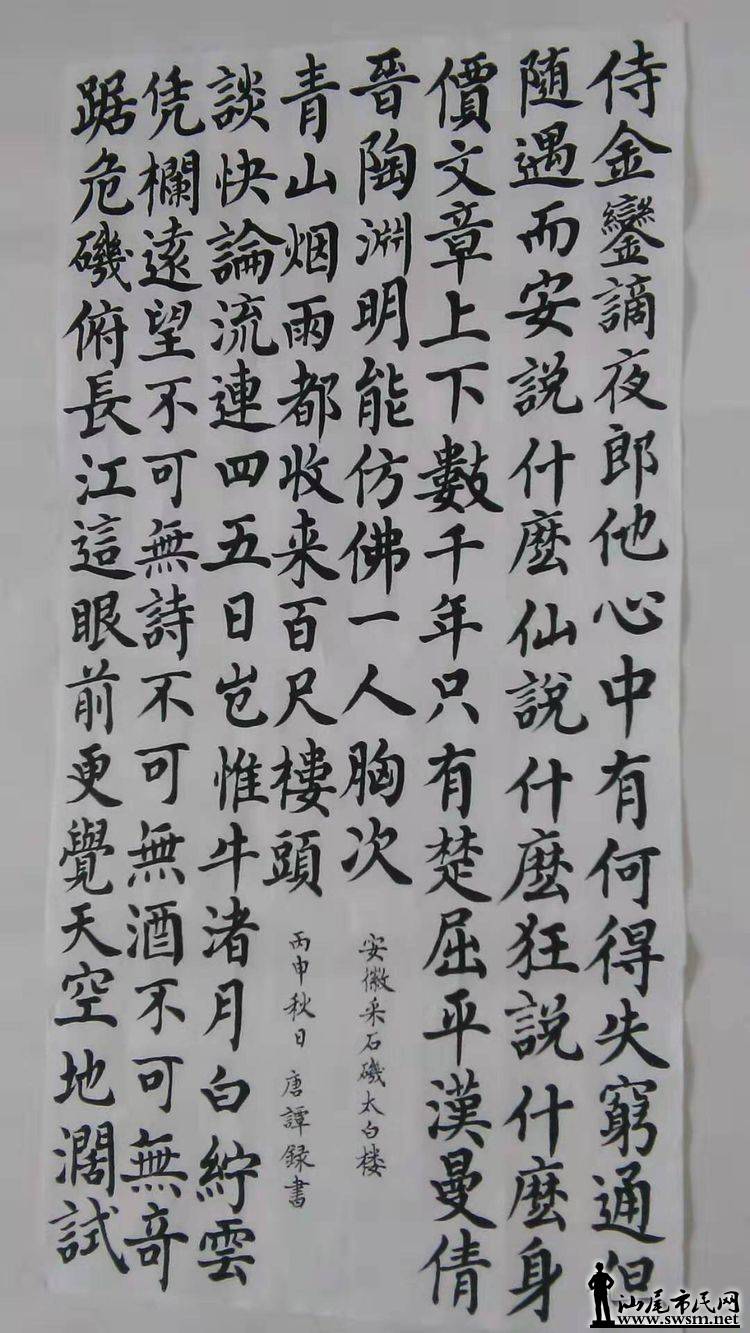 侍金鑾謫夜郎他心中有何得失窮通但
隨遇而安說什麼仙說什麼狂說什麼身
價文章上下數千年只有楚屈平漢曼倩
晉陶淵明能仿佛一人胸次
安徽采石磯太白楼
踞危磯俯長江這眼前更覺天空地濶試
凭欄遠望不可無詩不可無酒不可無奇
談快論流連四五日岂惟牛渚月白紵雲
青山烟雨都收来百尺樓頭
丙申秋日 唐譚録書
汕尾市民网
www.swsm.net